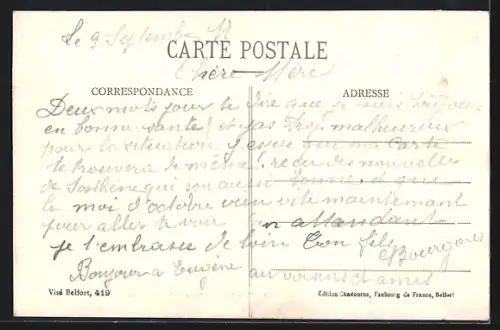 Le 9 Septembre
CARTE POSTALE
Chère Mère
CORRESPONDANCE
ADRESSE
Deux mots pour te dire que je suis toujours
en bonne santé! et pas trop malheureux
pour la situation j'espère que ma carte
te trouvera de même! reçu des nouvelles
de qui son aussi bonne. et que
le moi d'octobre vien vite maintenant
pour aller te voir en attendant
je t'embrasse de loin Ton fils
Bourgeois
Bonjour a Eugène au voisins et amis
Visé Belfort, 419
Edition Chadourne, Faubourg de France, Belfort